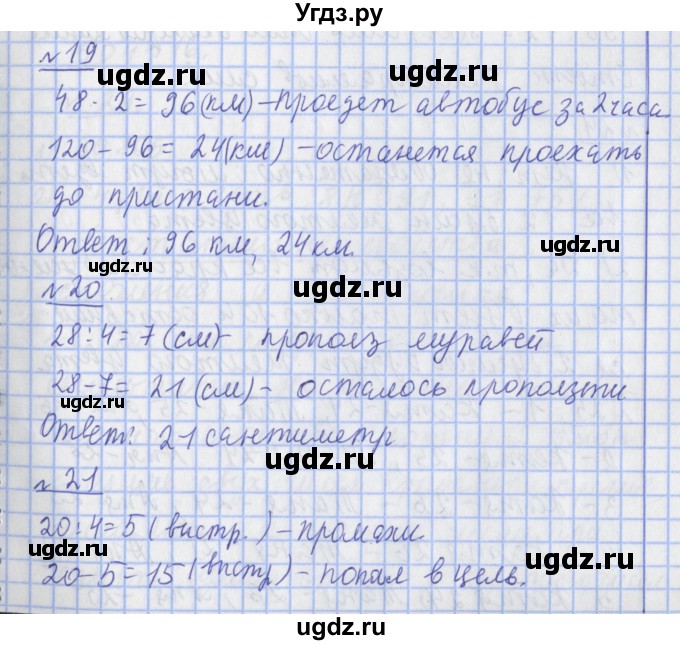 Угдз.ру
№19
ugdz.ru ugdz.ru
48 · 2 = 96 (км) – проедет автобус за 2 часа.
120 – 96 = 24 (км) – останется проехать
ugdz.ru
до пристани.
ugdz.ru
Ответ: 96 км, 24 км.
ugdz.ru
№20
ugdz.ru
28 : 4 = 7 (см) – прополз муравей
28 – 7 = 21 (см) – осталось проползти
ugdz.ru
Ответ: 21 сантиметр
ugdz.ru
№21
20 : 4 = 5 (выстр.) – промахи.
ugdz.ru ugdz.ru
20 – 5 = 15 (выстр) – попал в цель.
ugdz.ru